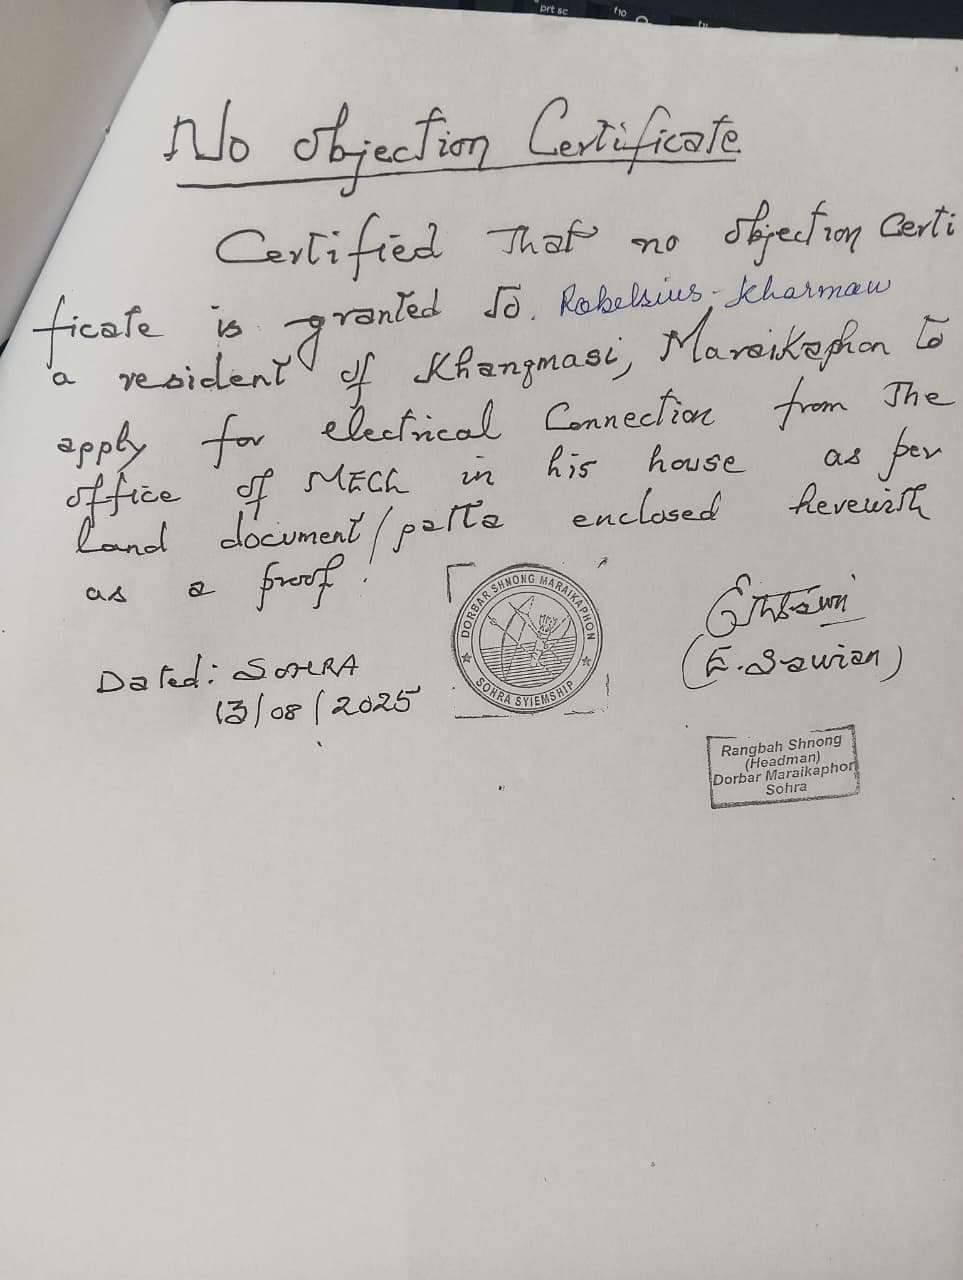 prt sc
f10
No objection Certificate
Certified That no objection Certi
ficate is granted to. Robelsius Kharmaw
a resident of Khangmasi, Maraikaphon to
apply for electrical Connection from The
office of MECL in his house as per
land document/patta enclosed herewith
as a proof.
DORBAR SHNONG MARAIKAPHON
SOHRA SYIEMSHIP
(E. Sawian)
Dated: SOHRA
13/08/2025
Rangbah Shnong
(Headman)
Dorbar Maraikaphon
Sohra